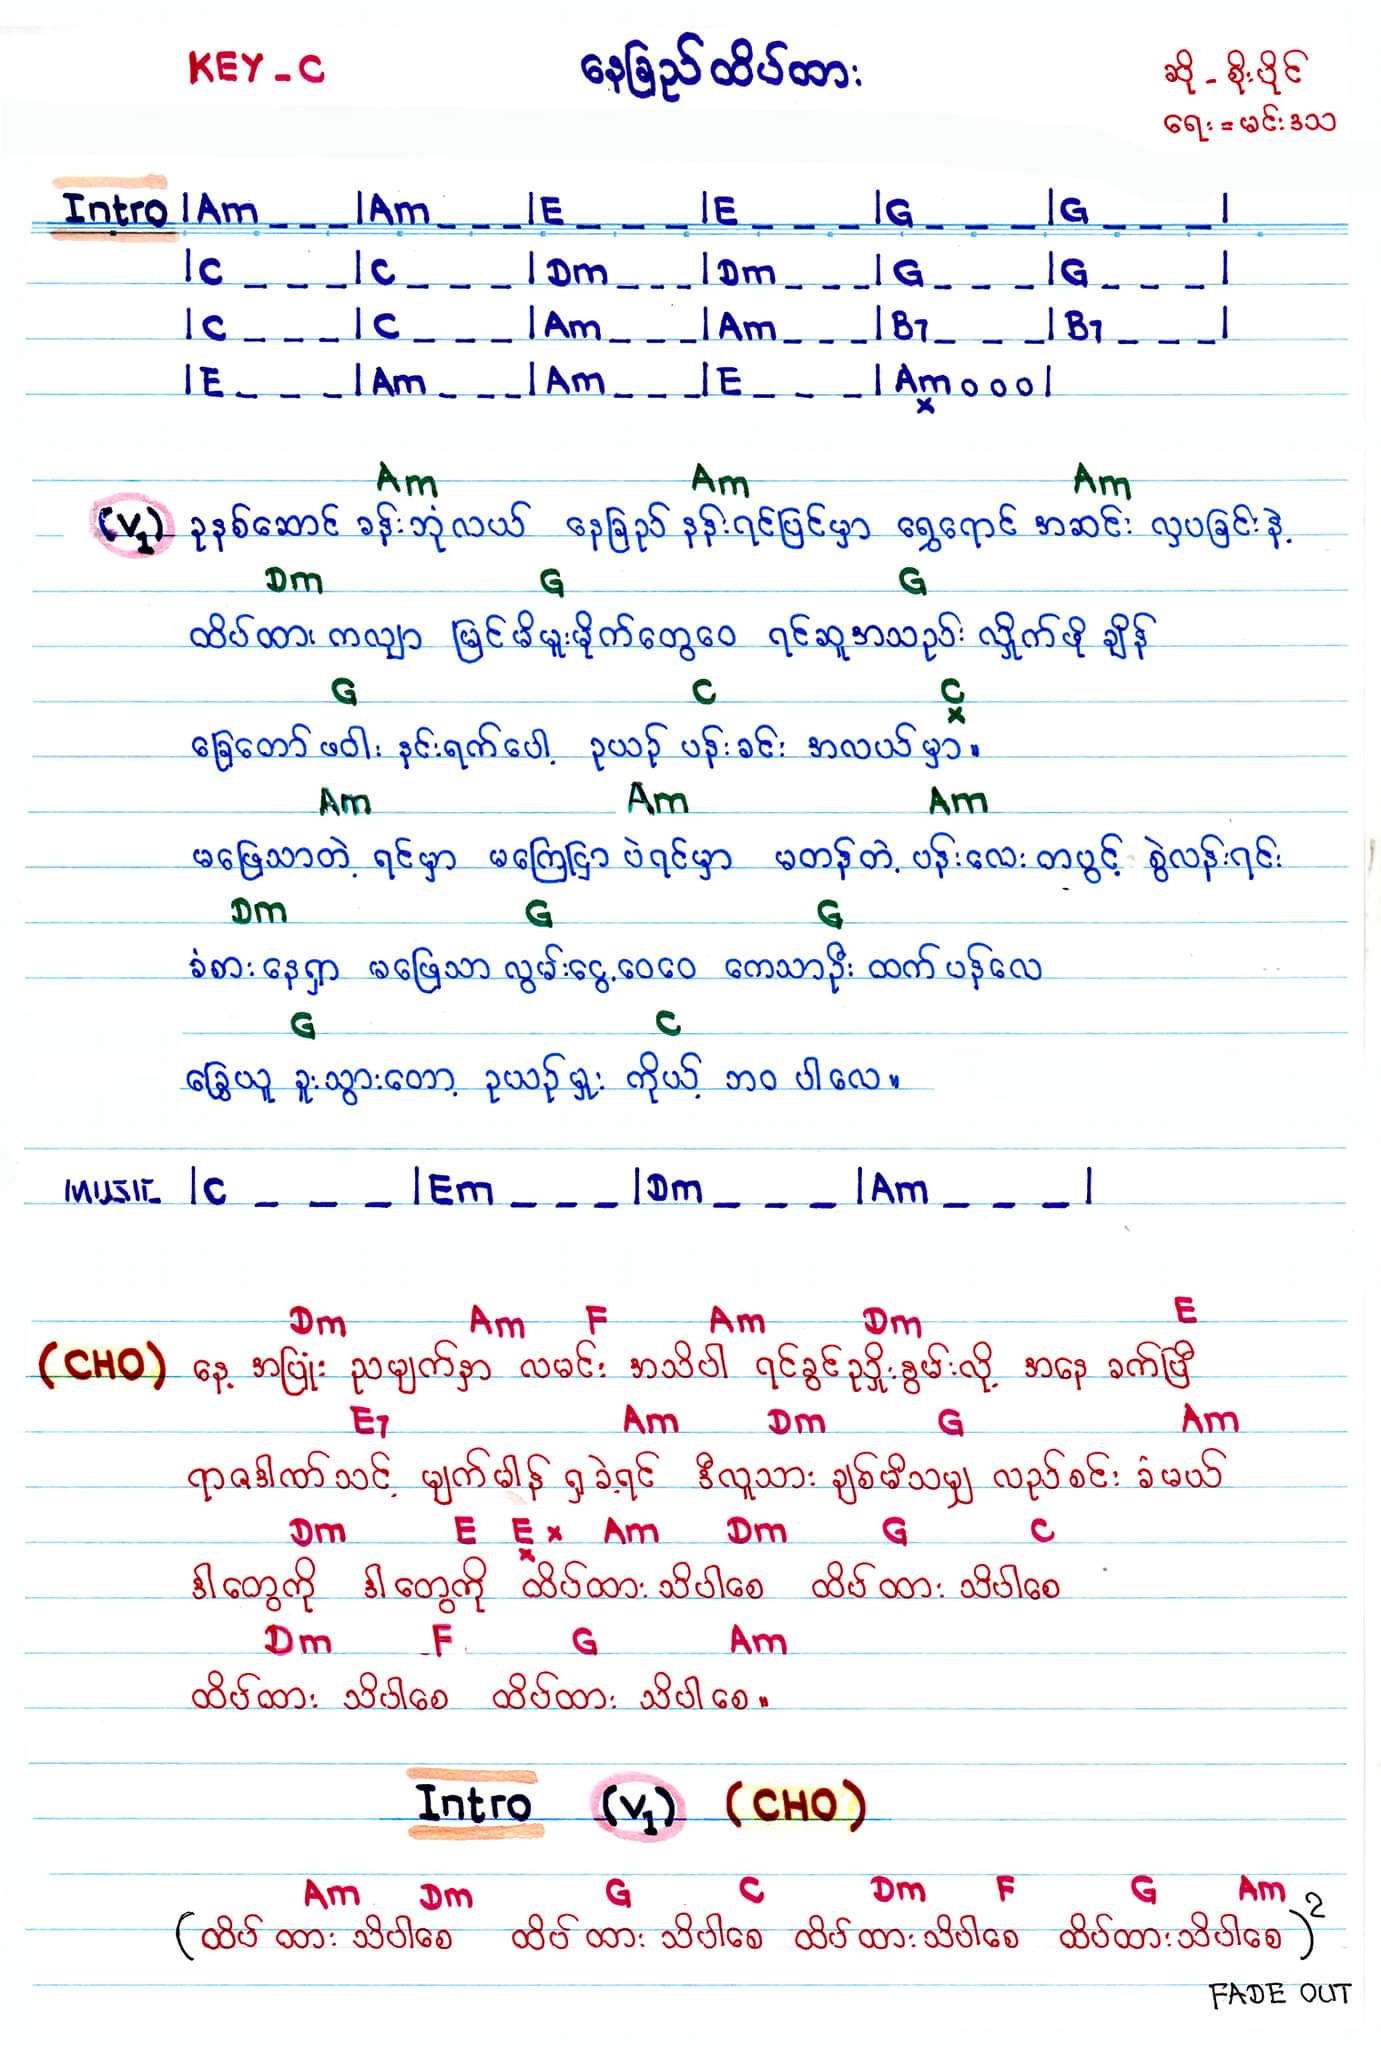 KEY - C
နေခြည်ထိပ်ထား
ဆို - စိုးပိုင်
ရေး = မင်းဒသ
Intro |Am _ _ _ |Am _ _ _ |E _ _ _ |E _ _ _ |G _ _ _ |G _ _ _ |
|C _ _ _ |C _ _ _ |Dm _ _ _ |Dm _ _ _ |G _ _ _ |G _ _ _ |
|C _ _ _ |C _ _ _ |Am _ _ _ |Am _ _ _ |B7 _ _ _ |B7 _ _ _ |
|E _ _ _ |Am _ _ _ |Am _ _ _ |E _ _ _ |Am o o o|
x
Am Am Am
(V1) ခုနစ်ဆောင် ခန်းဘုံလယ် နေခြည် နန်းရင်ပြင်မှာ ရွှေရောင် အဆင်း လှပခြင်းနဲ့
Dm G G
ထိပ်ထား ကလျာ မြင်မိမူးမိုက်တွေဝေ ရင်ဆူအသည်း လှိုက်ဖို ချိန်
G C C
x
ခြေတော် ဖဝါး နင်းရက်ပေါ့ ဥယျာဉ် ပန်းခင်း အလယ်မှာ။
Am Am Am
မဖြေသာတဲ့ ရင်မှာ မကြေငြာ ပဲရင်မှာ မတန်တဲ့ ပန်းလေး တပွင့် စွဲလန်းရင်း
Dm G G
ခံစား နေရှာ မဖြေသာ လွမ်းငွေ့ဝေဝေ ကေသာဦး ထက် ပန်လေ
G C
ခြွေယူ ခူးသွားတော့ ဥယျာဉ်မှူး ကိုယ့် ဘဝ ပါလေ။
MUSIC |C _ _ _ |Em _ _ _ |Dm _ _ _ |Am _ _ _ |
Dm Am F Am Dm E
(CHO) နေ့ အပြုံး ညမျက်နှာ လမင်း အသိပါ ရင်ခွင်ဥဩိုးနွမ်းလို့ အနေ ခက်ပြီ
E7 Am Dm G Am
ရာဇဒဏ်သင့် မျက်မာန် ရှခဲ့ရင် ဒီလူသား ချစ်မိသမျှ လည်စင်း ခံမယ်
Dm E E x Am Dm G C
x
ဒါတွေကို ဒါတွေကို ထိပ်ထား သိပါစေ ထိပ်ထား သိပါစေ
Dm F G Am
ထိပ်ထား သိပါစေ ထိပ်ထား သိပါစေ။
Intro (V1) (CHO)
Am Dm G C Dm F G Am
(ထိပ်ထား သိပါစေ ထိပ်ထား သိပါစေ ထိပ်ထား သိပါစေ ထိပ်ထား သိပါစေ)2
FADE OUT